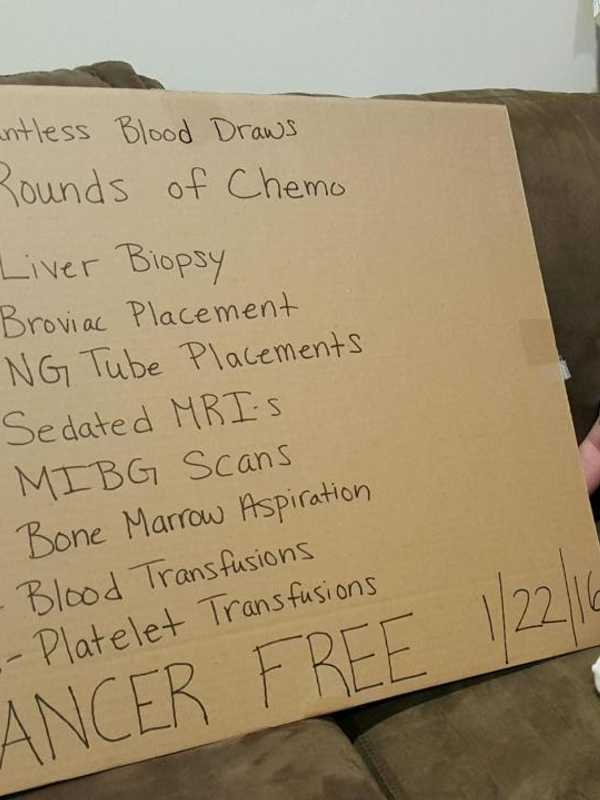 ntless Blood Draws
Rounds of Chemo
Liver Biopsy
Broviac Placement
NG Tube Placements
Sedated MRI-s
MIBG Scans
Bone Marrow Aspiration
- Blood Transfusions
- Platelet Transfusions
ANCER FREE 1/22/16